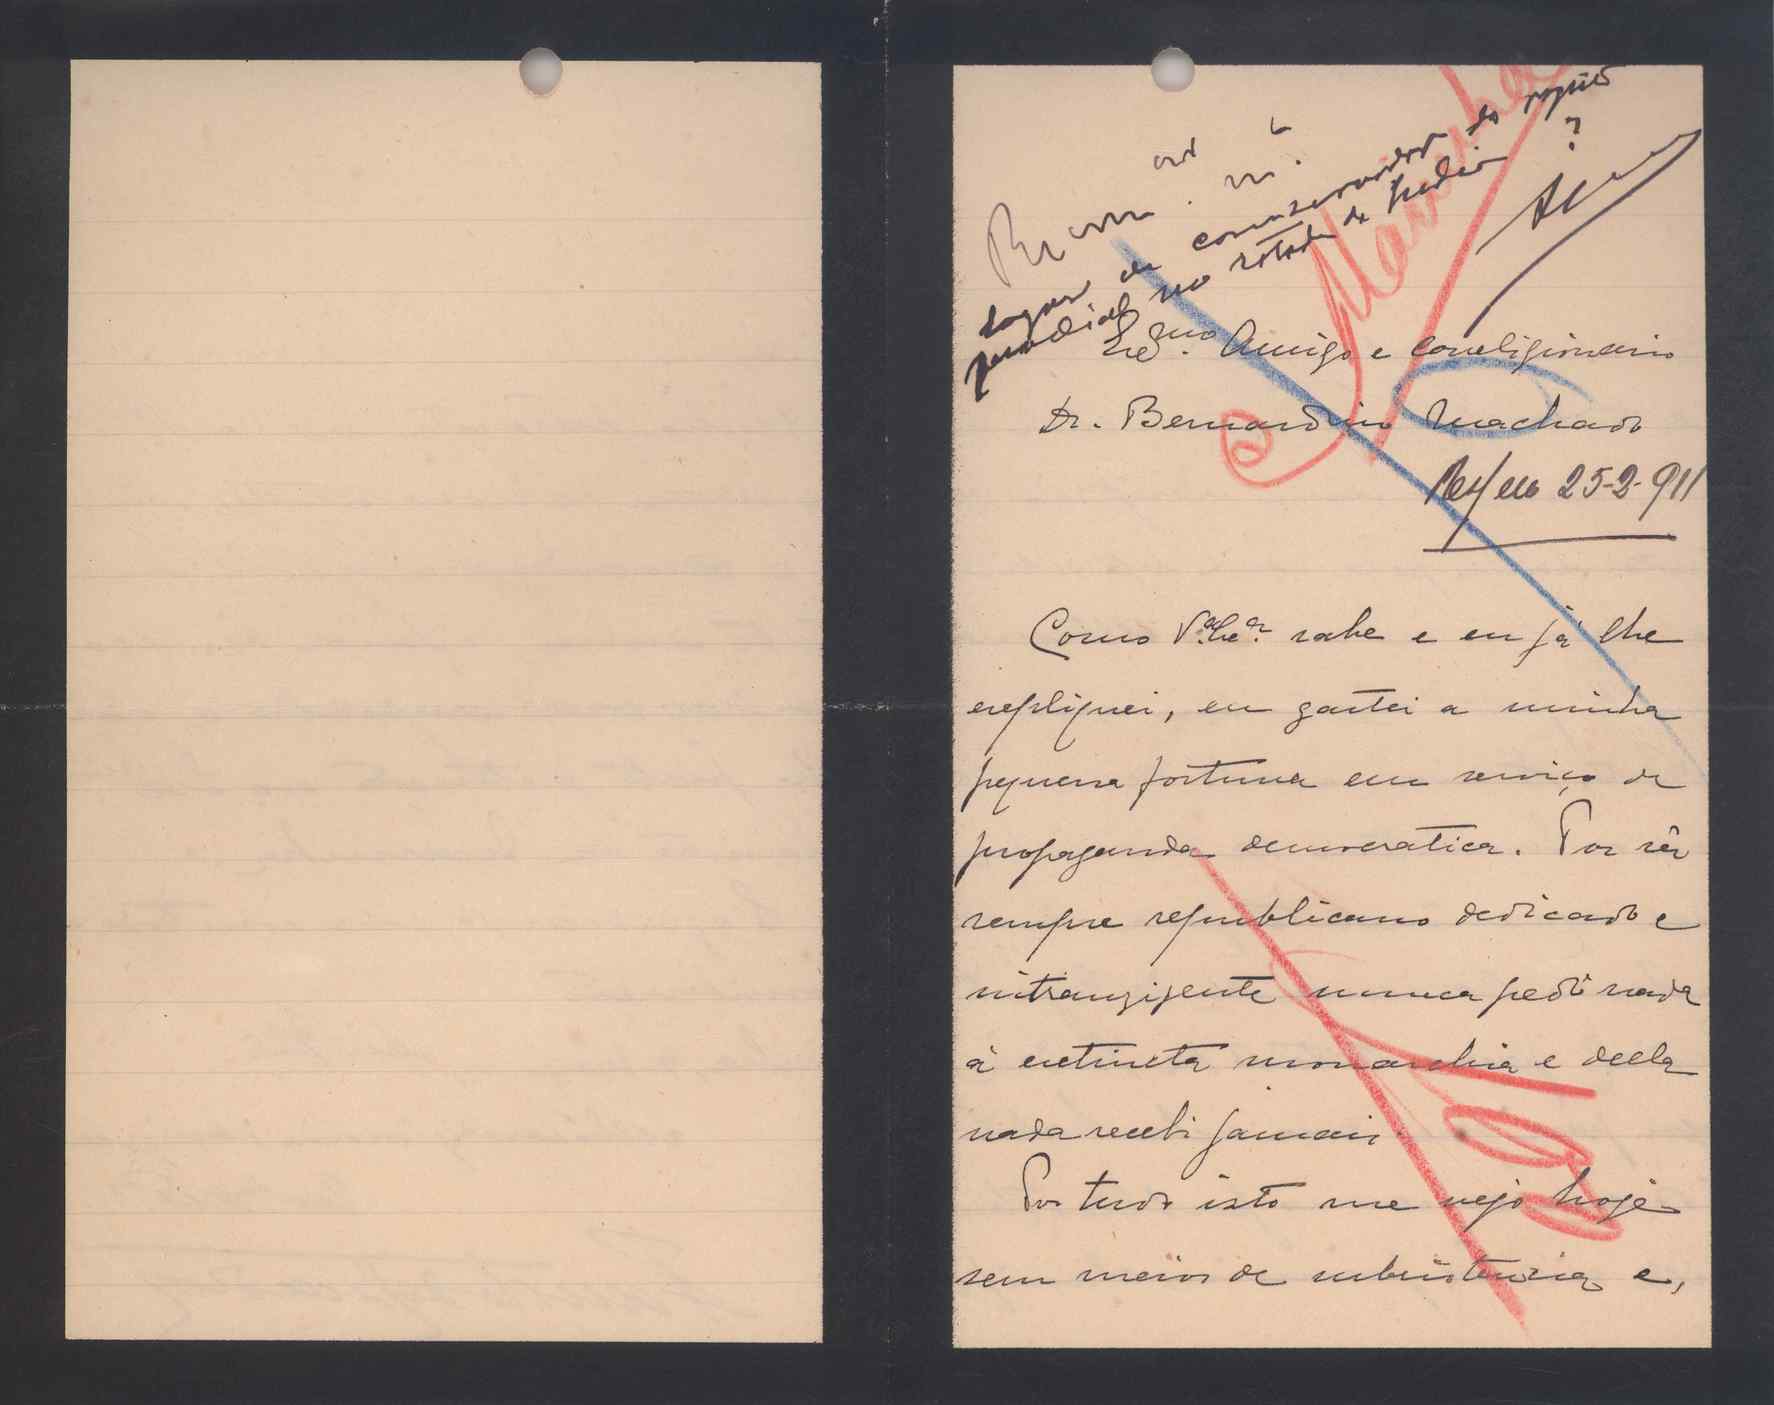 logar de conservador do registo
predial no estado da India ?
Ex.mo Amigo e Coreligionario
Dr. Bernardino Machado
25-2-911
Como V.a Ex.a sabe e eu já lhe
expliquei, eu gastei a minha
pequena fortuna em serviço da
propaganda democratica. Por sêr
sempre republicano dedicado e
intranzigente nunca pedi nada
á extincta monarchia e della
nada recebi jamais.
Por tudo isto me vejo hoje
sem meios de subsistencia e,